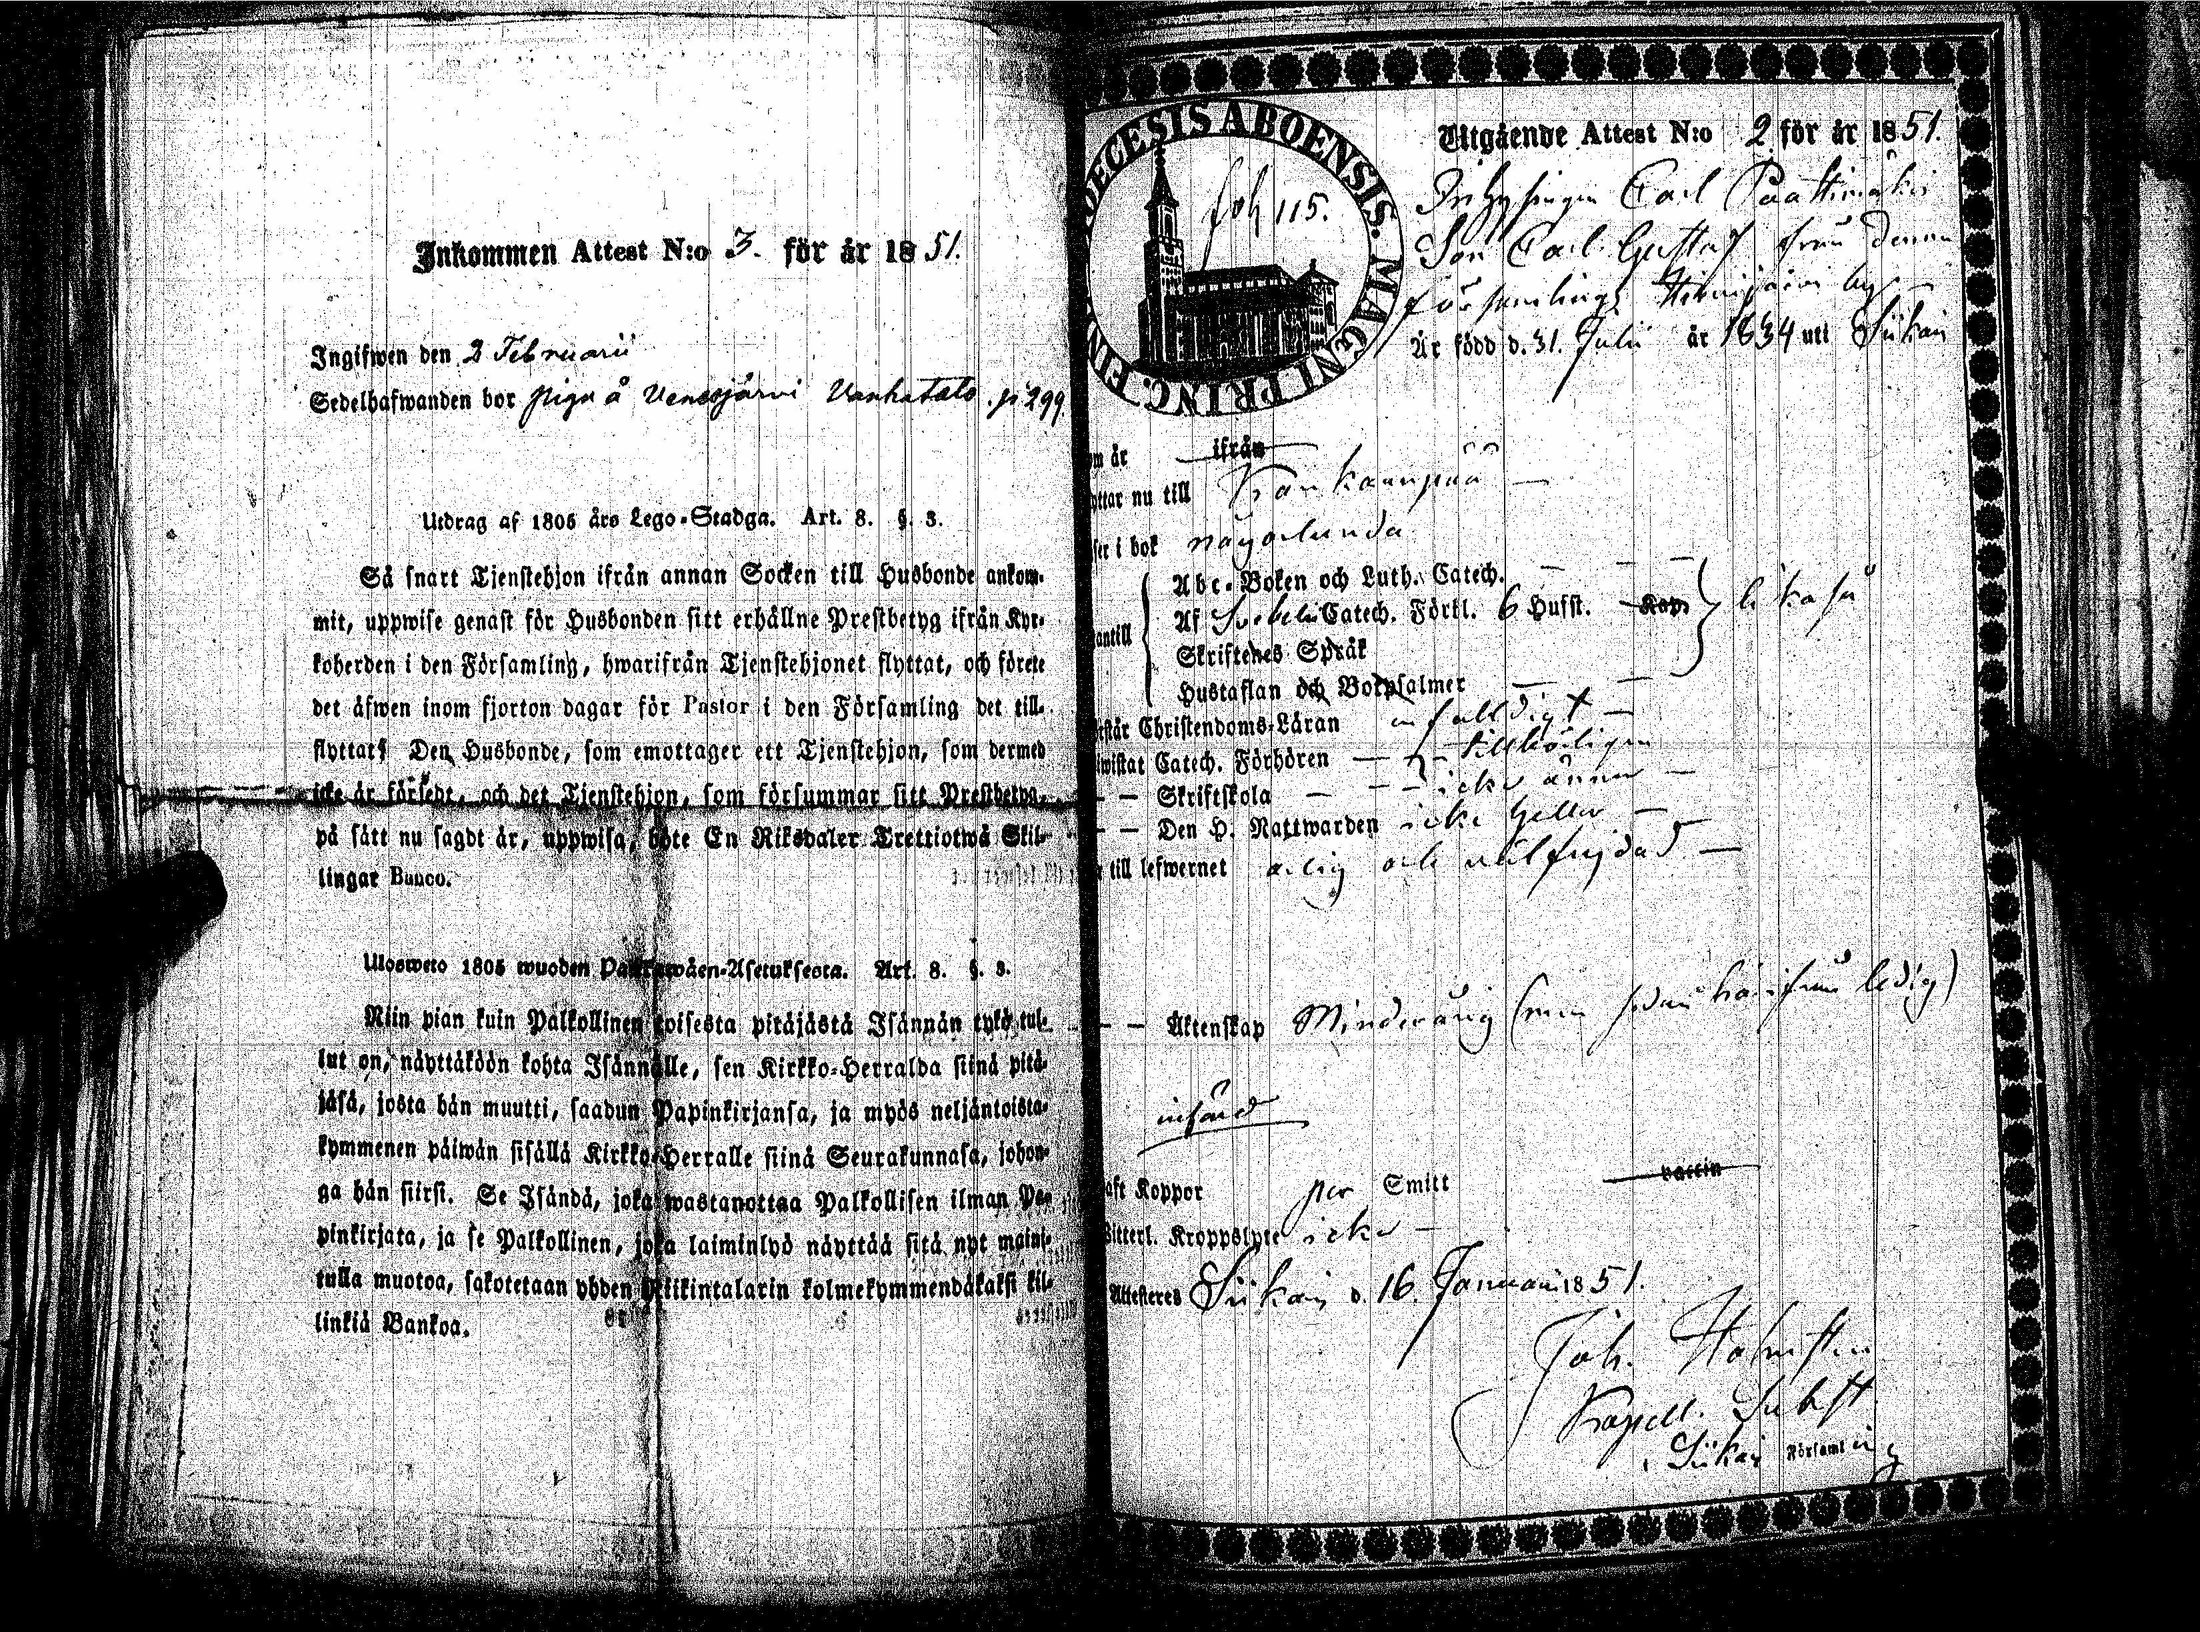 Inkommen Attest N:o 3. för år 1851.
Ingifwen den 2 Februarii
Sedelhafwanden bor piga å Venesjärvi Vanhatalo. p 299
Utdrag af 1805 års Lego-Stadga. Art. 8. §. 3.
Så snart Tjenstehjon ifrån annan Socken till Husbonde ankom-
mit, uppwise genast för Husbonden sitt erhållne Prestbetyg ifrån Kyr-
koherden i den Församling, hwarifrån Tjenstehjonet flyttat, och förete
det äfwen inom fjorton dagar för Pastor i den Församling det till-
flyttat. Den Husbonde, som emottager ett Tjenstehjon, som dermed
icke är försedt, och det Tjenstehjon, som försummar sitt Prestbetyg,
på sätt nu sagdt är, uppwisa, böte En Riksdaler Trettiotwå Skil-
lingar Banco.
Ulosweto 1805 wuoden Palkkawäen-Asetuksesta. Art. 8. §. 3.
Niin pian kuin Palkollinen toisesta pitäjästä Isännän tykö tul-
lut on, näyttäköön kohta Isännälle, sen Kirkko-Herralda siinä pitä-
jäsä, josta hän muutti, saadun Papinkirjansa, ja myös neljäntoista-
kymmenen päiwän sisällä Kirkko-Herralle siinä Seurakunnasa, johon-
ga hän siirsi. Se Isändä, joka wastanottaa Palkollisen ilman Pa-
pinkirjata, ja se Palkollinen, joka laiminlyö näyttää sitä nyt maini-
tulla muotoa, sakotetaan yhden Riikintalarin kolmekymmendäkaksi kil-
linkiä Bankoa.
DIOECESIS ABOENSIS. MAGNI PRINC. FIN
fol 115.
Utgående Attest N:o 2 för år 1851.
Inhysingen Carl Paattimäki
Son Carl Gustaf från denna
församlings by
Är född d. 31. Julii år 1834 uti Siikais
om år ifrån
yttar nu till Kankaanpää
ser i bok någorlunda
antill
Abc-Boken och Luth. Catech.
Af Svebelii Catech. Förkl. 6 Hufst. Kap. likaså
Skriftenes Språk
Hustaflan och Botpsalmer
rstår Christendoms-Läran enfaldigt
wistat Catech. Förhören tillbörligen
Skriftskola icke ännu
Den H. Nattwarden icke heller
till lefwernet ärlig och välfrejdad
Äktenskap Minderårig (men sedan härifrån ledig)
införd
aft Koppor per Smitt vaccin
Witterl. Kroppslyte icke
Attesteres Siikais d. 16. Januarii 1851.
Joh. Holmsten
Kapell. Subst.
i Siikais Församling